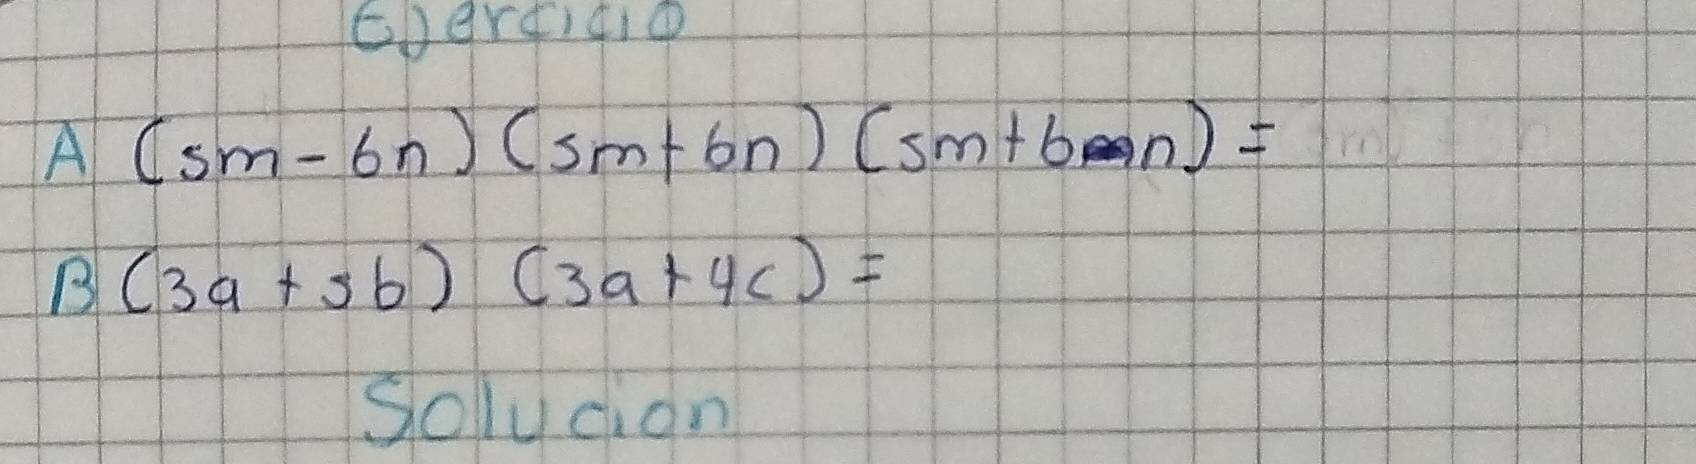 Ejercicio
A (5m-6n) (5m+6n) (5m+6n) =
B (3a+5b) (3a+4c) =
Solucion